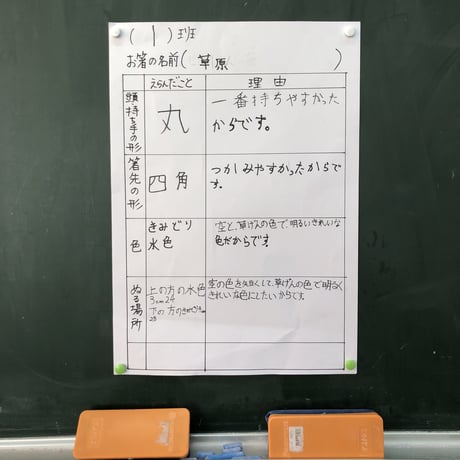 (1)班
お箸の名前(草原)
えらんだこと 理由
頭持ち手の形
丸
一番持ちやすかった
からです。
箸先の形
四角
つかみやすかったからで
す。
色
きみどり
水色
空と、草げんの色で、明るいきれいな
色だからです。
ぬる場所
上の方の水色
下の方の
空の色を
して、草げんの色で明るく
きれいな色にしたいからです。